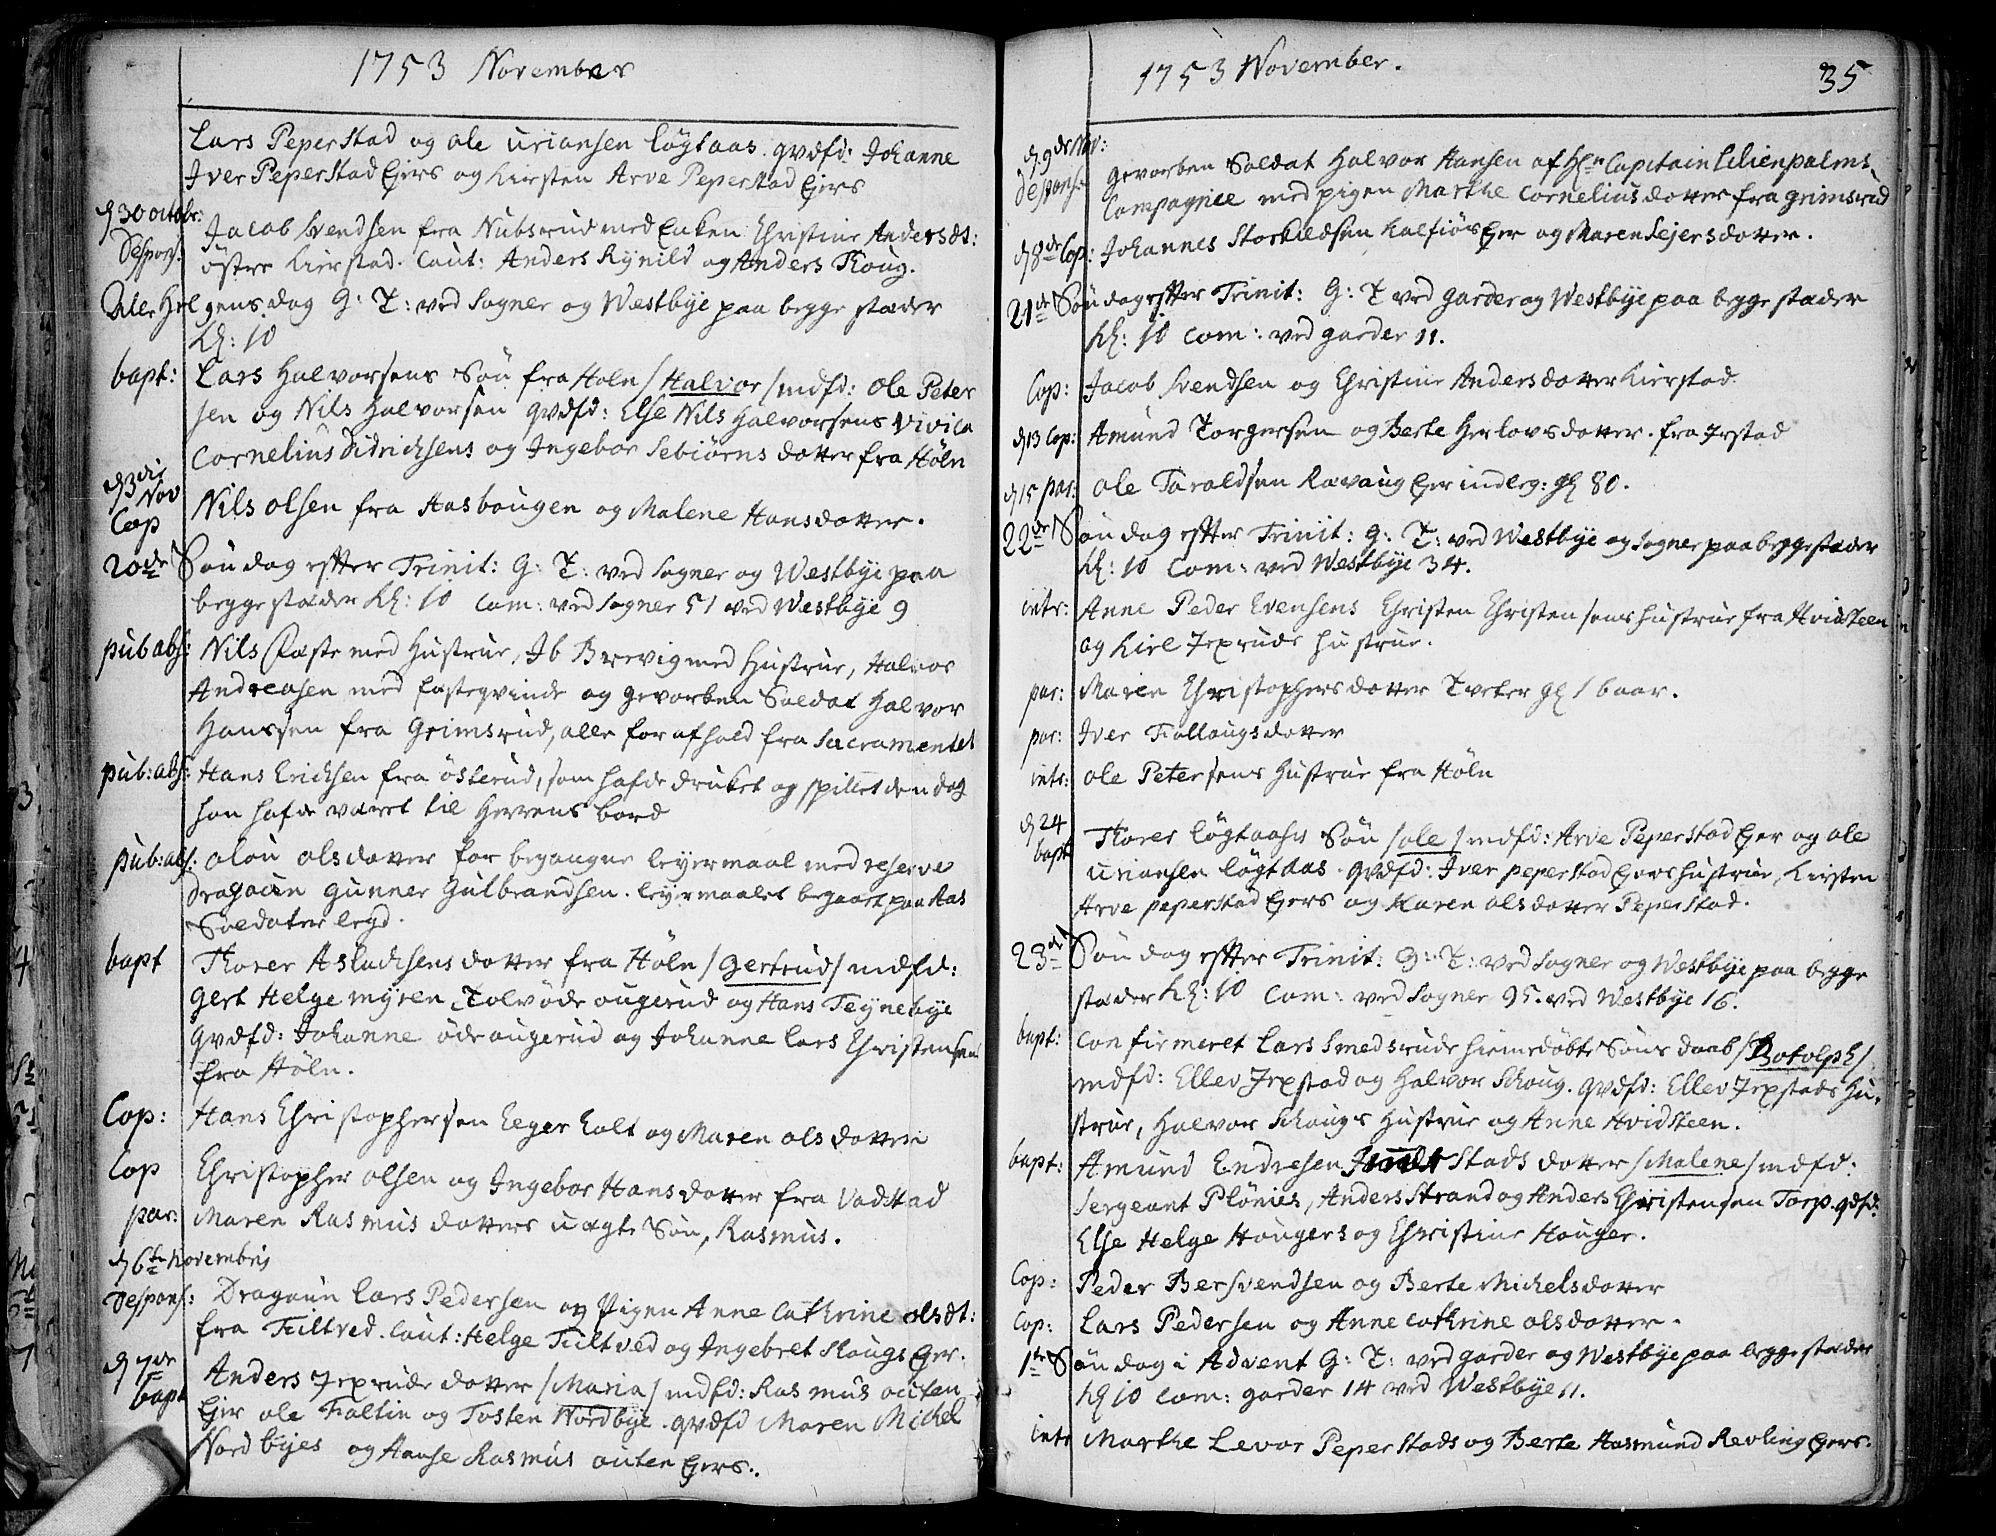 1753 November
Lars Peperstad og ole uriansen løgtaas. qvdfd: Johanne
Iver Peperstad Ejers og Kirsten Arve Peperstad Ejers
d 30 octobr: Jacob Svendsen fra Nubsrud med Enken Christine Andersdt:
Despons: østre Kierstad. Caut: Anders Rynild og Anders Skoug.
Alle Helgens dag G: T: ved Sogner og Westbye paa begge stæder
kl: 10
bapt: Lars Halvorsens Søn fra Høln / Halvor / mdfd: ole Peter
sen og Nils Halvorsen qvdfd: Else Nils Halvorsens Vivica
Cornelius Didrichsens og Ingebor Sebiørns dotter fra Høln
d 3die Nov Cop Nils olsen fra Aasbougen og Malene Hansdotter.
20de Søndag efter Trinit: G: T: ved Sogner og Westbye paa
begge stæder kl: 10 Com: ved Sogner 51 ved Westbye 9
pub abs: Nils Fæste med Hustrue, Ib Brevig med Hustrue, Halvor
Andreasen med fæsteqvinde og gevorben Soldat Halvor
Hanssen fra Grimsrud, alle for afhold fra Sacramentet
pub: abs: Hans Erichsen fra østerud, som hafde druket og spillet den dag
han hafde været til Herrens bord
pub: abs: olou olsdotter for begangne leyermaal med reserve
dragoun Gunner Gulbrandsen. leyermaalet begaaet paa Aas
Soldater legd.
bapt Thorer Aslachsens dotter fra Høln / Gertrud / mdfd:
Gert Helge myren Tolv øde ougerud og Hans Teynebye
qvdfd: Johanne øde ougerud og Johanne Lars Christensens
fra Høln.
Cop: Hans Christophersen Eeger holt og Maren olsdotter
Cop Christopher olsen og Ingebor Hansdotter fra Vadstad
par: Maren Rasmus dotters uægte Søn, Rasmus.
d 6te Novembris
Despons: Dragoun Lars Pedersen og Pigen Anne Cathrine olsdt:
fra Tiiltved. Caut: Helge Tiiltved og Ingebret Skougs Ejer.
d 7de bapt Anders Jexruds dotter / Maria / mdfd: Rasmus outen
Ejer ole Foltin og Tosten Nordbye. qvdfd Maren Michel
Nordbyes og Aanse Rasmus outen Ejers.
1753 November. 35
d 9de Nov: Gevorben Soldat Halvor Hansen af Hrn Capitain Lilienpalms
Despons: Compagnie med pigen Marthe Corneliusdotter fra Grimsrud
d 8de Cop: Johannes Storkildsen Kalfiøs Ejer og Maren Sejersdotter.
21de Søndag efter Trinit: G: T ved Garder og Westbye paa begge stæder
kl: 10 Com: ved Garder 11.
Cop: Jacob Svendsen og Christine Andersdotter Kierstad
d 13 Cop: Amund Torgersen og Berte Herlovsdotter. fra Irstad
d 15 par: ole Taraldsen Ravaug Ejer indleg: gl 80.
22de Søndag efter Trinit: G: T: ved Westbye og Sogner paa begge stæder
kl: 10 Com: ved Westbye 34.
intr: Anne Peder Evensens Christen Christensens hustrue fra Hvidsteen
og Kiel Jexruds hustrue.
par: Maren Christophersdotter Tveter gl 1 1/2 aar.
par: Iver Follaugsdotter
intr: ole Petersens Hustrue fra Høln
d 24 bapt Thorer løgtaases Søn / ole / mdfd: Arve Peperstad Ejer og ole
uriansen løgtaas. qvdfd: Iver peperstad Ejers hustrue, Kirsten
Arve peperstad Ejers og Karen olsdotter Peperstad.
23de Søndag efter Trinit: G: T: ved Sogner og Westbye paa begge
stæder kl: 10 Com: ved Sogner 95. ved Westbye 16.
bapt: Confirmeret Lars Smedsruds hiemedøbte Søns daab / Botolph /
mdfd: Ellev Jexstad og Halvor Schoug. qvdfd: Ellev Jexstads Hu,
strue, Halvor Schougs Hustrue og Anne Hvidsteen.
bapt: Amund Endresen stads dotter / Malene / mdfd:
Sergeant Plønies, Anders Strand og Anders Christensen Torp. qdfd:
Else Helge Hougers og Christine Houger.
Cop: Peder Bersvendsen og Berte Michelsdotter
Cop: Lars Pedersen og Anne Cathrine olsdotter.
1te Søndag i Advent G: T: ved Garder og Westbye paa begge stæder
kl 10 Com: Garder 14 ved Westbye 11.
intr Marthe Levor Peperstads og Berte Aasmund Revling Ejers.